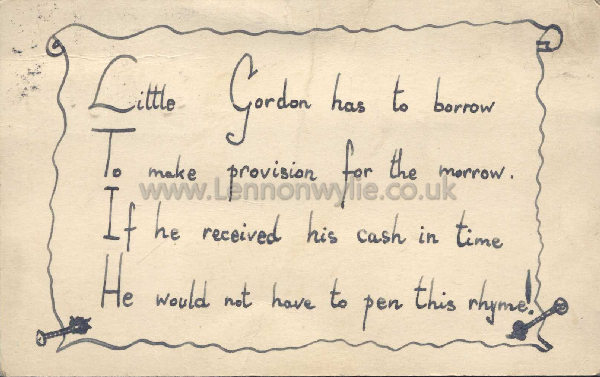 Little Gordon has to borrow
To make provision for the morrow.
www.Lennonwylie.co.uk
If he received his cash in time
He would not have to pen this rhyme!